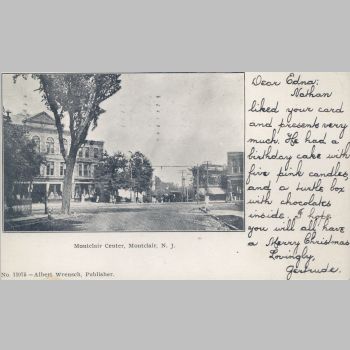 Dear Edna:
Nathan
liked your card
and presents very
much. He had a
birthday cake with
five pink candles,
and a turtle box
with chocolates
inside. I hope
you will all have
a Merry Christmas
Lovingly,
Gertrude.
Montclair Center, Montclair, N. J.
No. 11015 — Albert Wrensch, Publisher.